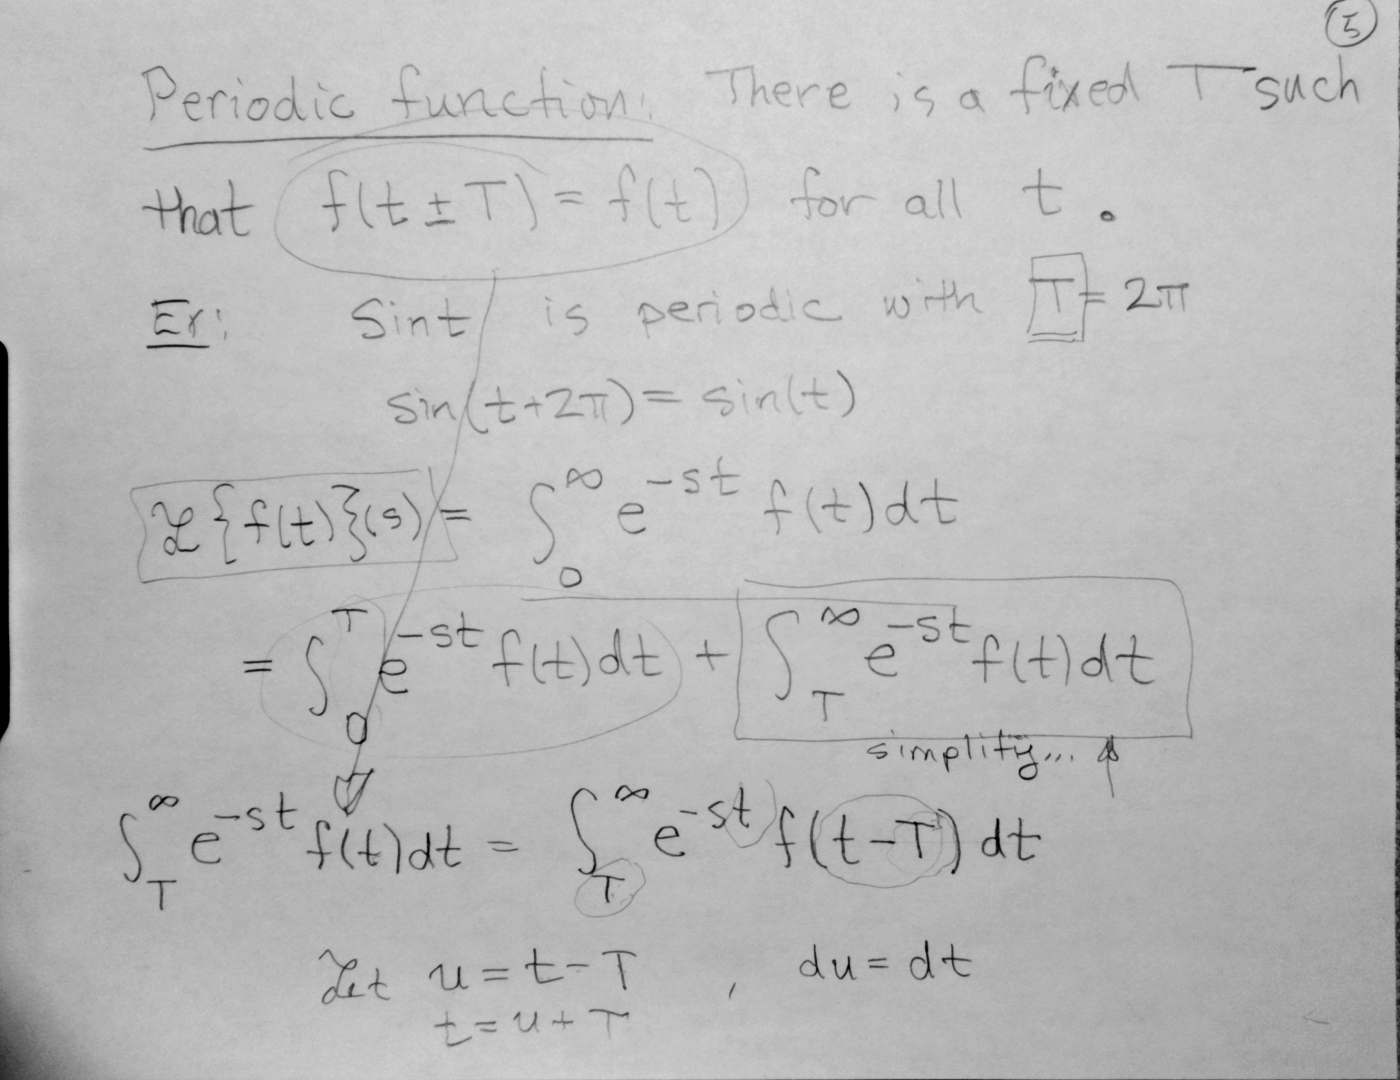 5
Periodic function: There is a fixed T such
that f(t ± T) = f(t) for all t.
Ex: Sint is periodic with T = 2π
sin(t+2π) = sin(t)
ℒ{f(t)}(s) = ∫₀^∞ e^{-st} f(t)dt
= ∫₀^T e^{-st} f(t)dt + ∫_T^∞ e^{-st} f(t)dt
simplify...
∫_T^∞ e^{-st} f(t)dt = ∫_T^∞ e^{-st} f(t-T) dt
Let u = t-T , du = dt
t = u + T